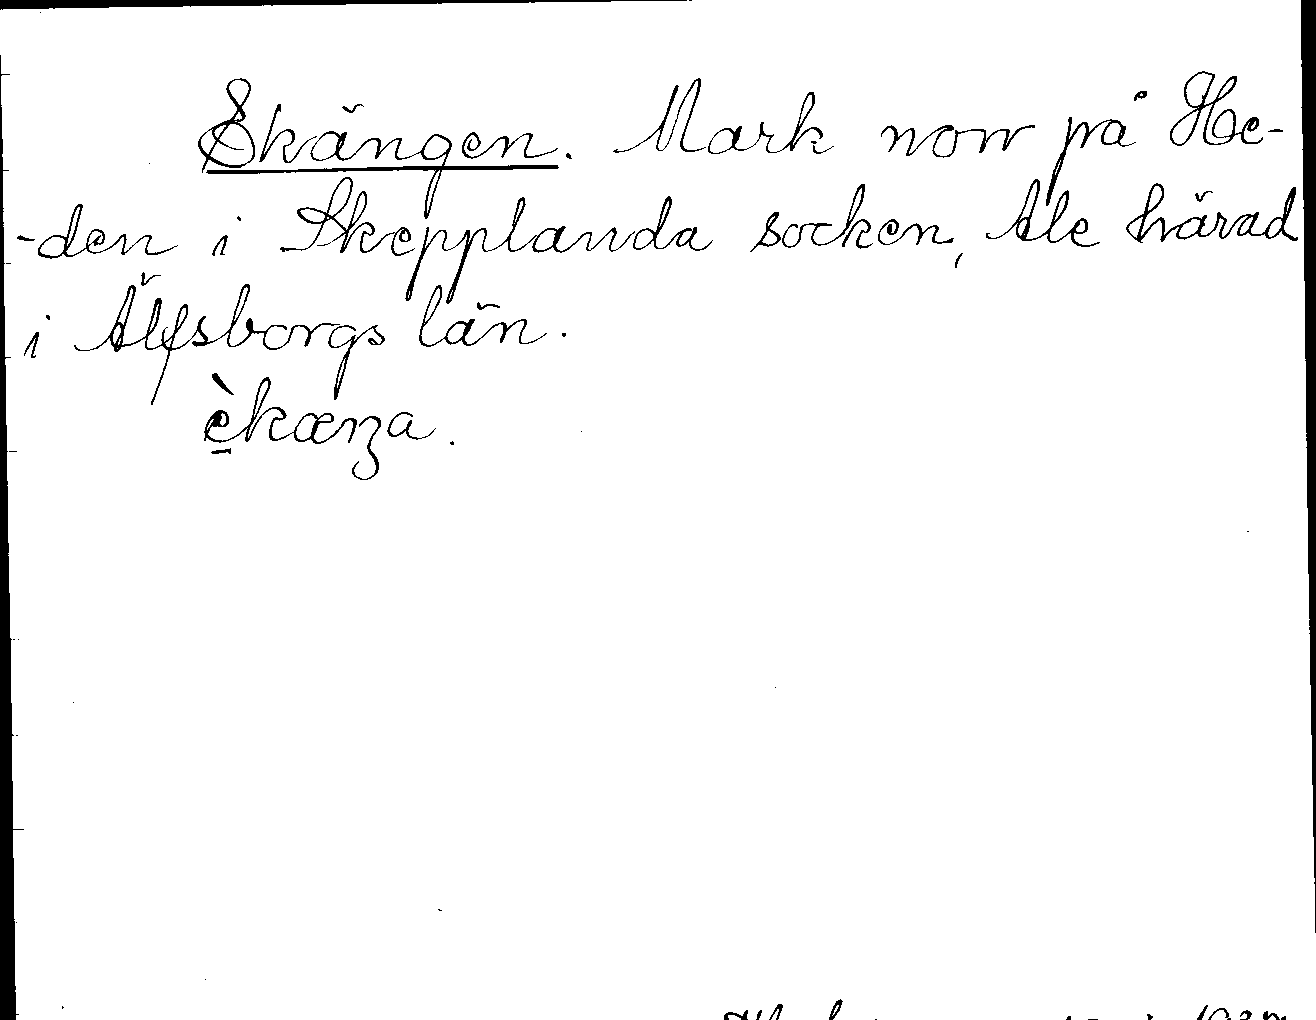 Ekängen. Mark norr på He-
-den i Skepplanda socken, Ale härad
i Älfsborgs län.
èkænɜa.